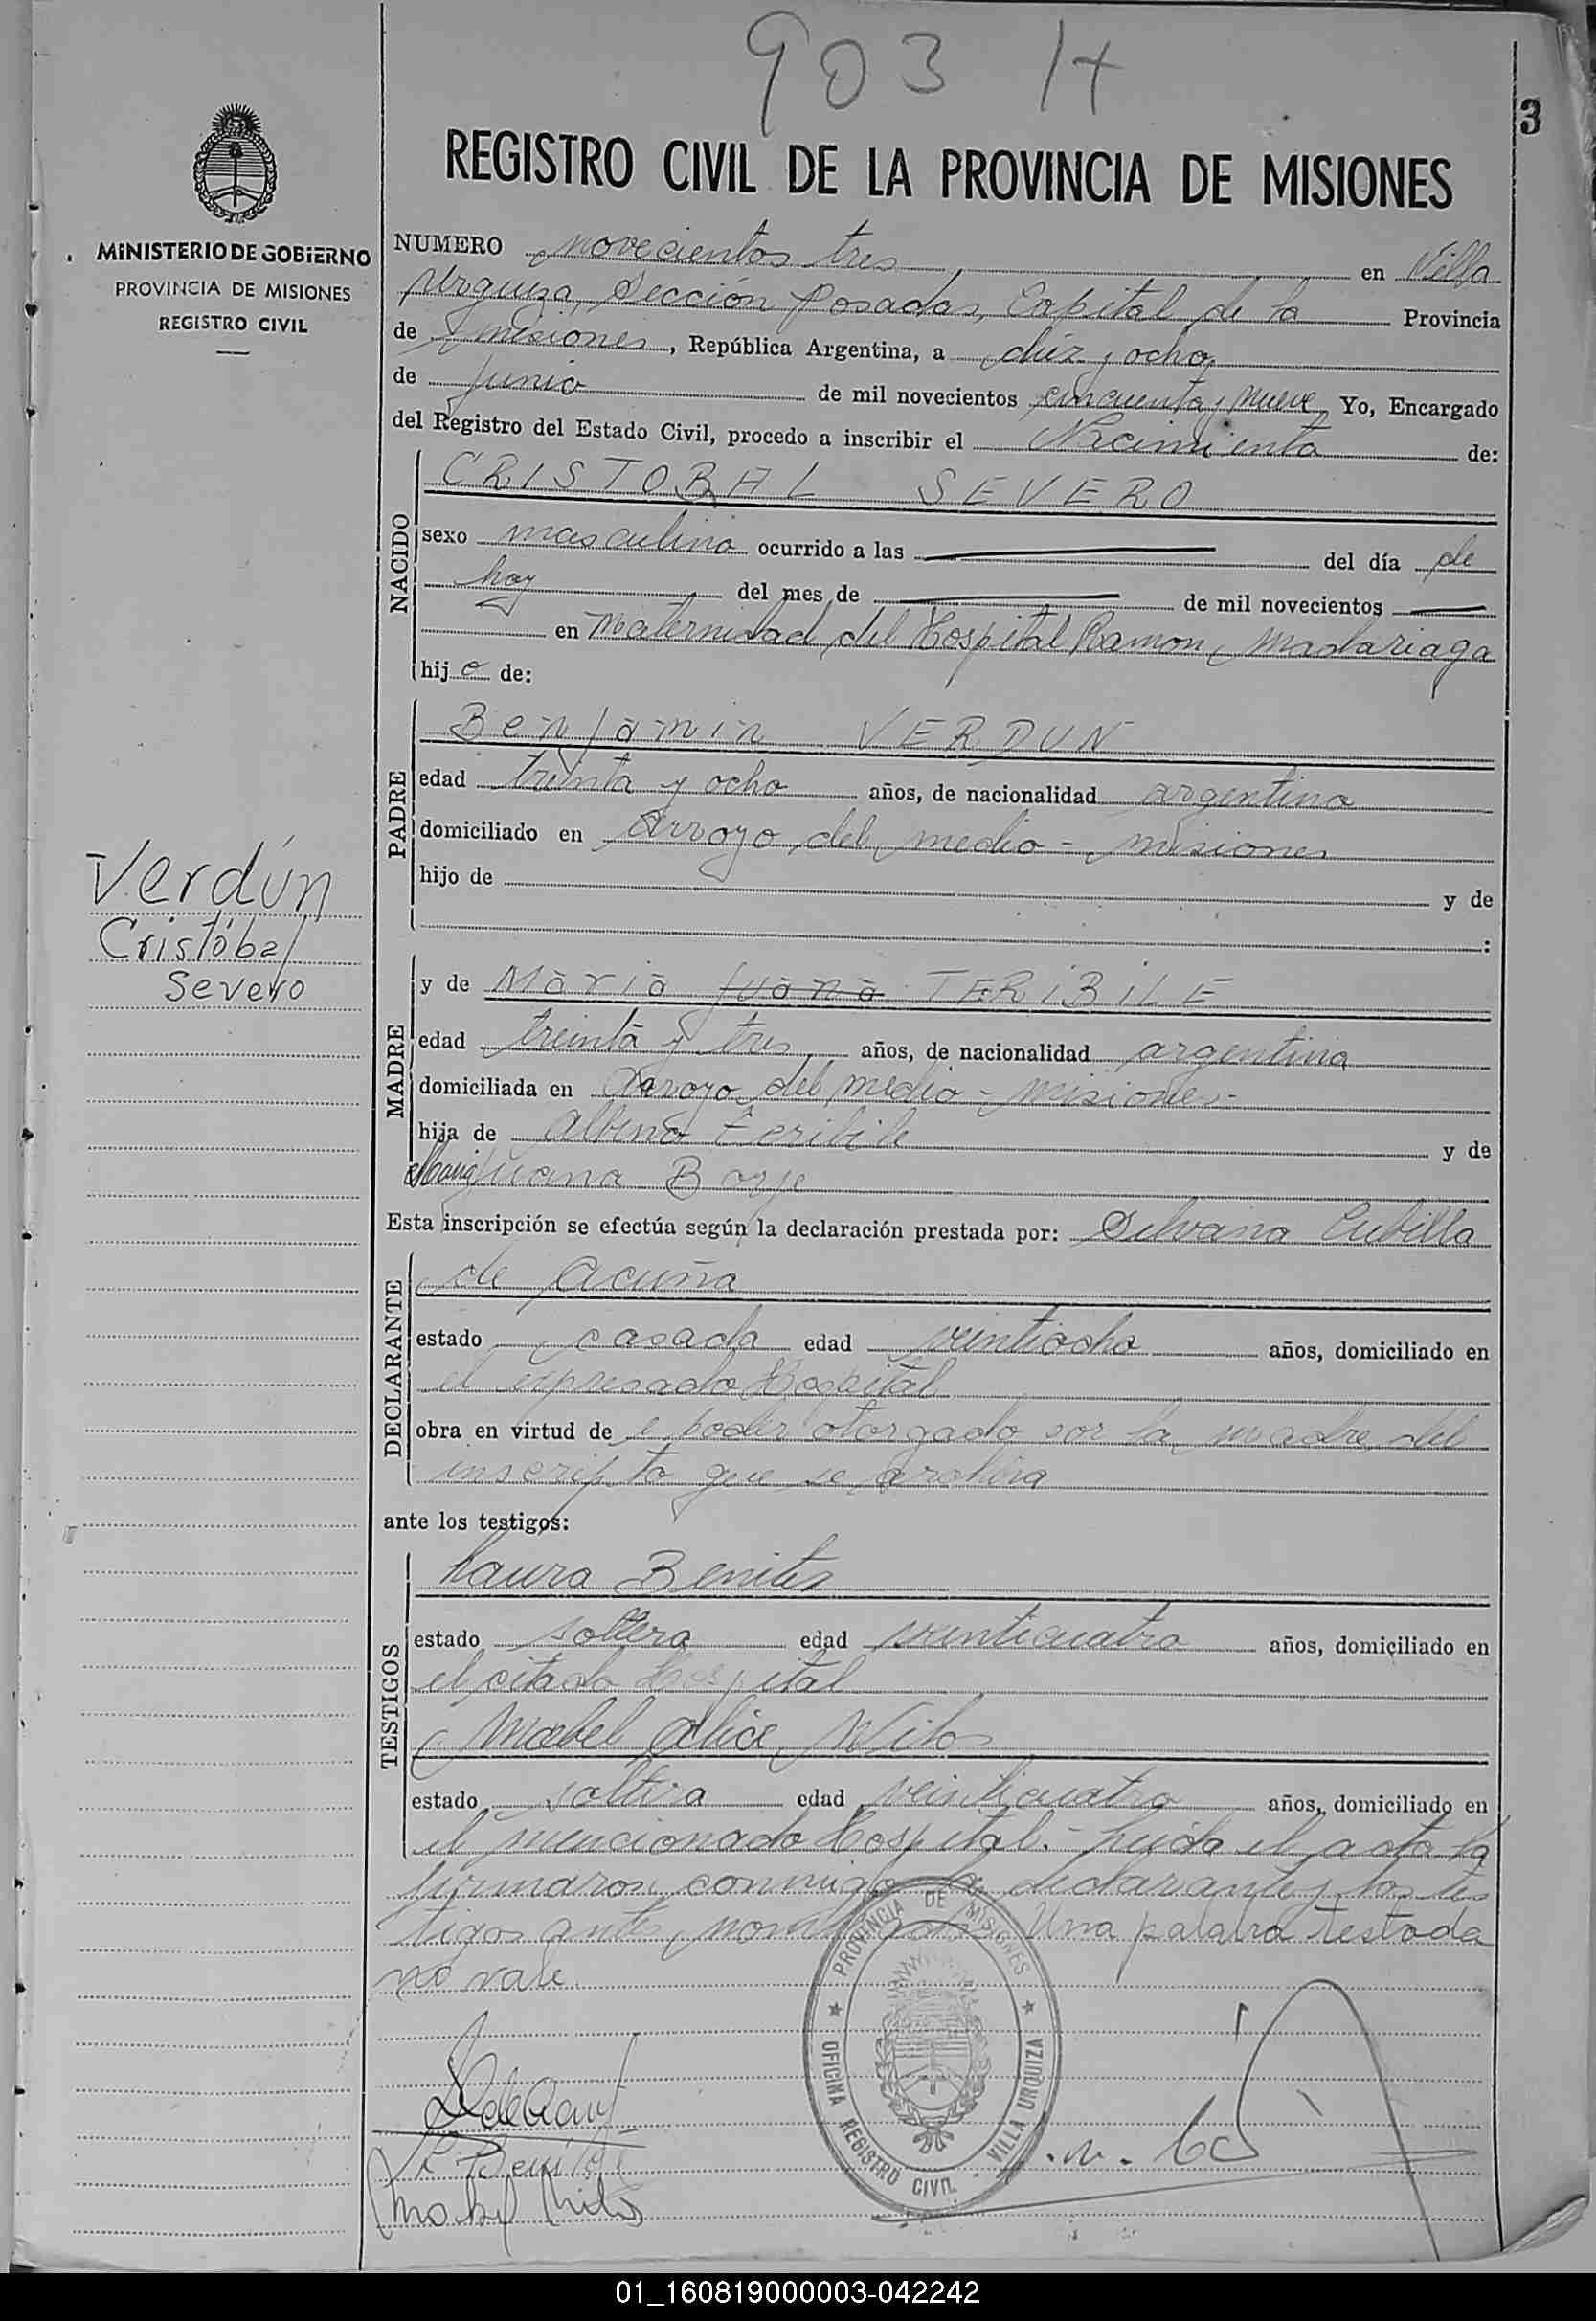 903 H
3
REGISTRO CIVIL DE LA PROVINCIA DE MISIONES
MINISTERIO DE GOBIERNO
PROVINCIA DE MISIONES
REGISTRO CIVIL
NUMERO novecientos tres en Villa
Urquiza, Sección Posadas, Capital de la Provincia
de Misiones, República Argentina, a diez y ocho
de Junio de mil novecientos cincuenta y nueve, Yo, Encargado
del Registro del Estado Civil, procedo a inscribir el Nacimiento de:
NACIDO
CRISTOBAL SEVERO
sexo masculino ocurrido a las del día de
hoy del mes de de mil novecientos
en Maternidad del Hospital Ramon Madariaga
hijo de:
PADRE
Benjamin VERDUN
edad treinta y ocho años, de nacionalidad argentina
domiciliado en Arroyo del medio - Misiones
hijo de y de
:
Verdún
Cristóbal
Severo
MADRE
y de Maria Juana TERIBILE
edad treinta y tres años, de nacionalidad argentina
domiciliada en Arroyo del medio - Misiones -
hija de Albino Teribile y de
Maria Juana
Esta inscripción se efectúa según la declaración prestada por: Silvana Cubilla
DECLARANTE
de Acuña
estado casada edad veintiocho años, domiciliado en
el expresado Hospital
obra en virtud de poder otorgado por la madre del
inscripto que se archiva
ante los testigos:
TESTIGOS
Laura Benitez
estado soltera edad veinticuatro años, domiciliado en
el citado Hospital
Mabel Alice
estado soltera edad veinticuatro años, domiciliado en
el mencionado Hospital. - Leida el acta la
firmaron conmigo la declarante y los tes
tigos antes Una palabra testada
no vale
PROVINCIA DE MISIONES
OFICINA REGISTRO CIVIL - VILLA URQUIZA
01_160819000003-042242